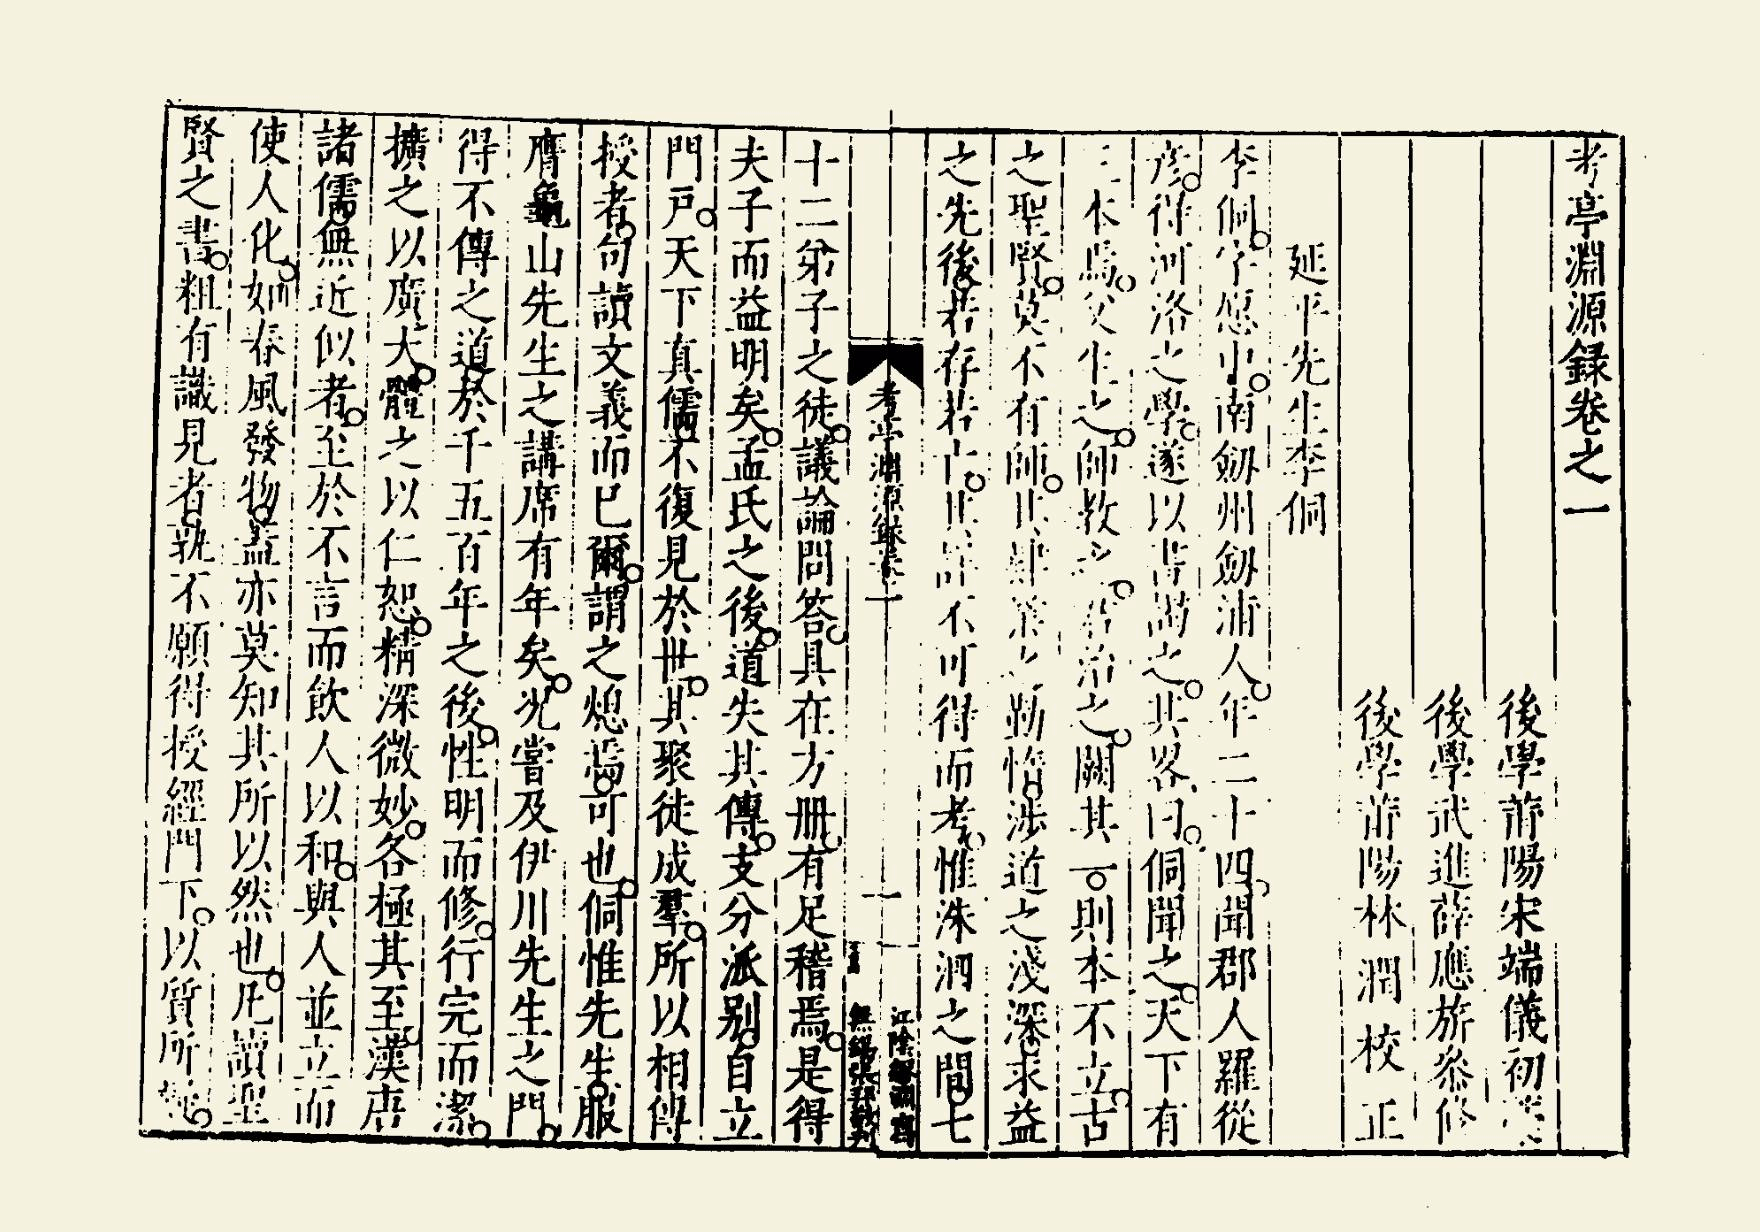 考亭淵源録卷之一
後學莆陽宋端儀初
後學武進薛應旂叅修
後學莆陽林潤校正
延平先生李侗
李侗字愿中南劔州劔浦人年二十四聞郡人羅從
彦得河洛之學遂以書謁之其畧曰侗聞之天下有
三本焉父生之師教之君治之闕其一則本不立古
之聖賢莫不有師其肄業之勤惰渉道之淺深求益
之先後若存若亡其詳不可得而考惟洙泗之間七
十二弟子之徒議論問答具在方冊有足稽焉是得
夫子而益明矣孟氏之後道失其傳支分派别自立
門戸天下真儒不復見於世其聚徒成羣所以相傳
授者句讀文義而已爾謂之熄焉可也侗惟先生服
膺龜山先生之講席有年矣况嘗及伊川先生之門
得不傳之道於千五百年之後性明而修行完而潔
擴之以廣大體之以仁恕精深微妙各極其至漢唐
諸儒無近似者至於不言而飲人以和與人並立而
使人化如春風發物蓋亦莫知其所以然也凡讀聖
賢之書粗有識見者孰不願得授經門下以質所
考亭淵源録卷一
一
江陰繆淵寫
無錫張邦